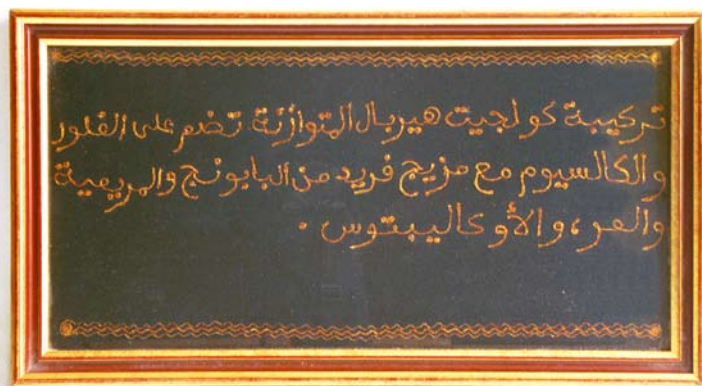 تركيبة كولجيت هيربال المتوازنة تضم على الفلور
والكالسيوم مع مزيج فريد من البابونج والمريمية
والمر، والأوكاليبتوس .